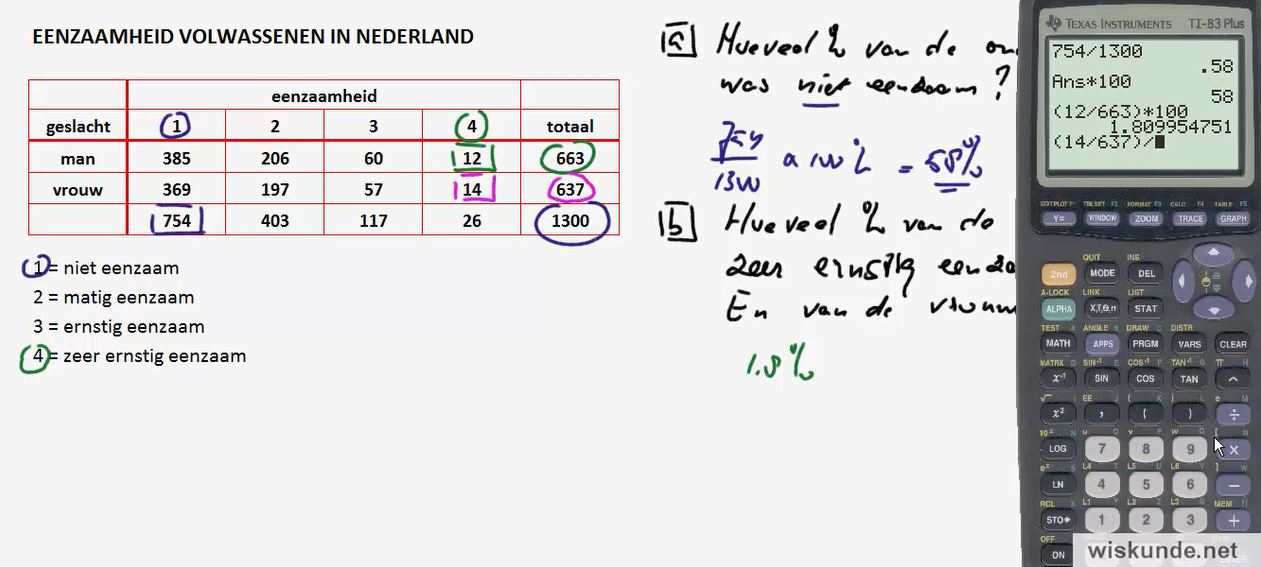 EENZAAMHEID VOLWASSENEN IN NEDERLAND
eenzaamheid
geslacht 1 2 3 4 totaal
man 385 206 60 12 663
vrouw 369 197 57 14 637
754 403 117 26 1300
1 = niet eenzaam
2 = matig eenzaam
3 = ernstig eenzaam
4 = zeer ernstig eenzaam
a Hoeveel % van de
was niet eenzaam ?
754
1300
= 58%
b Hoeveel % van de
zeer ernstig
En van de
1.8 %
TEXAS INSTRUMENTS TI-83 Plus
754/1300
.58
Ans*100
58
(12/663)*100
1.809954751
(14/637)/
STATPLOT F1 TBLSET F2 FORMAT F3 CALC F4 TABLE F5
Y= WINDOW ZOOM TRACE GRAPH
QUIT INS
2nd MODE DEL
A-LOCK LINK LIST
ALPHA X,T,θ,n STAT
TEST A ANGLE B DRAW C DISTR
MATH APPS PRGM VARS CLEAR
MATRX D SIN⁻¹ E COS⁻¹ F TAN⁻¹ G π H
x⁻¹ SIN COS TAN ^
√ I EE J { K } L e M
x² , ( ) ÷
10ˣ N u O v P w Q [ R
LOG 7 8 9 ×
eˣ S L4 T L5 U L6 V ] W
LN 4 5 6 −
RCL X L1 Y L2 Z L3 θ MEM "
STO 1 2 3 +
OFF
ON
wiskunde.net